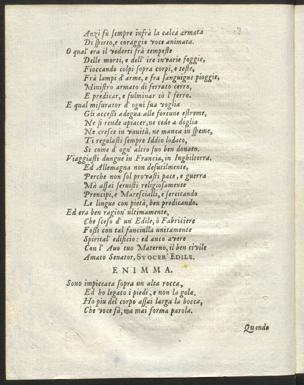 Anzi fù sempre infrà la calca armata
Di spirto, e coraggio voce animata.
O qual' era il vederti frà tempeste
Delle morti, e dell' ire in varie foggie,
Fioccando colpi sopra corpi, e teste,
Frà lampi d'arme, e fra sanguigne pioggie,
Ministro armato di ferrato cerro,
E predicar, e fulminar cò l' ferro.
E qual misurator d' ogni sua voglia
Gli accessi adegua alle fortune estreme,
Ne si rende a piacer, ne cede a doglia
Ne cresce in vanità, ne manca in speme,
Ti regolasti sempre Iddio lodato,
Si come d' ogn' altro suo ben donato.
Viaggiasti dunque in Francia, in Inghilterra.
Ed Allemagna non
Perche non sol provasti pace, e guerra
Mà assai servisti religiosamente
Prencipi, e Marescialli, esercitando
Le lingue con pietà, ben predicando.
Ed era ben ragion' ultimamente,
Che sceso d' un' Edile, ò Fabriciere
Fosti con tal fanciulla unitamente
Spirital' edificio: ed anco avero
Con l' Avo tuo Materno, il ben civile
Amato Senator, SVOCER' EDILE.
ENIMMA.
Sono impiccata sopra un alta rocca,
Ed ho legato i piedi, e non la gola,
Ho piu del corpo assai larga la bocca,
Che voce fà, ma mai forma parola.
Quendo